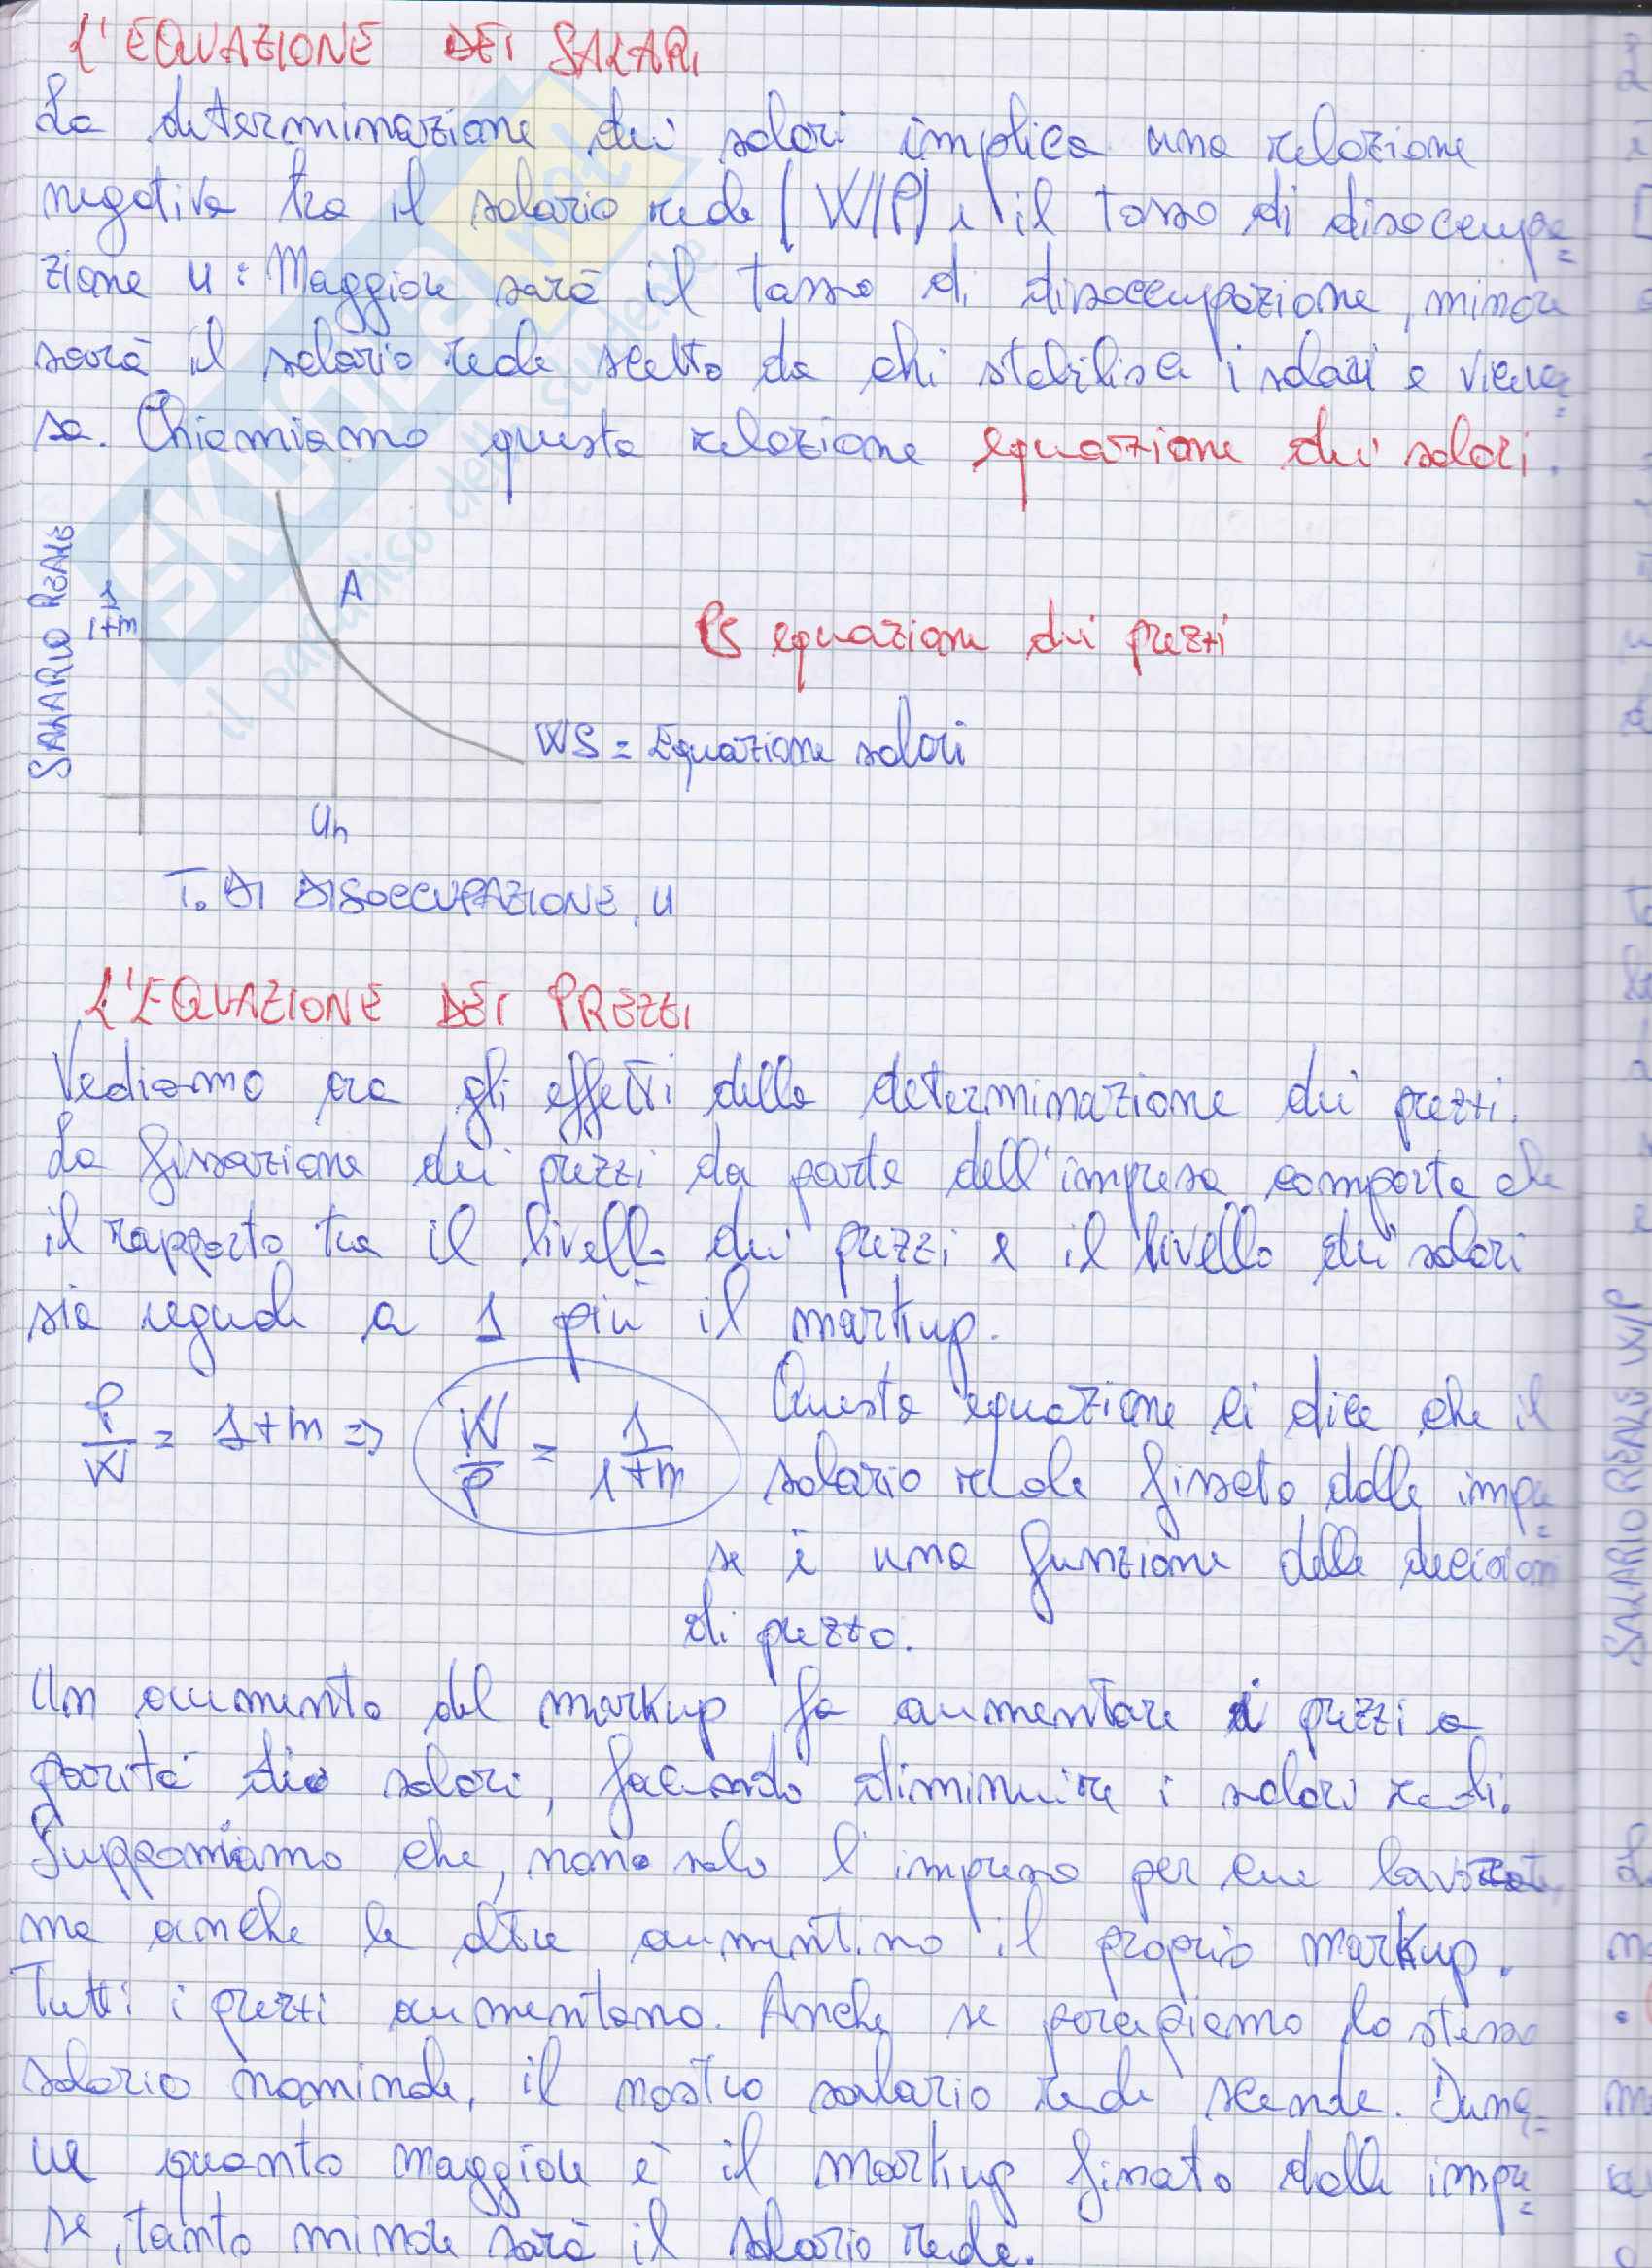 L'EQUAZIONE DEI SALARI
La determinazione dei salari implica una relazione
negativa tra il salario reale (W/P) e il tasso di disoccupa=
zione u: Maggiore sarà il tasso di disoccupazione, minore
sarà il salario reale scelto da chi stabilisce i salari e vicever=
sa. Chiamiamo questa relazione equazione dei salari.
SALARIO REALE
1
1+m
A
PS equazione dei prezzi
WS = Equazione salari
Un
T. DI DISOCCUPAZIONE, u
L'EQUAZIONE DEI PREZZI
Vediamo ora gli effetti della determinazione dei prezzi.
La fissazione dei prezzi da parte dell'impresa comporta che
il rapporto tra il livello dei prezzi e il livello dei salari
sia uguale a 1 più il markup.
P/W = 1+m => W/P = 1/1+m Questa equazione ci dice che il
salario reale fissato dalle impre=
se è una funzione delle decisioni
di prezzo.
Un aumento del markup fa aumentare i prezzi a
parità dei salari, facendo diminuire i salari reali.
Supponiamo che, non solo l'impresa per cui
ma anche le altre aumentino il proprio markup.
Tutti i prezzi aumentano. Anche se percepiamo lo stesso
salario nominale, il nostro salario reale scende. Dunq=
ue quanto maggiore è il markup fissato dalle impre=
se, tanto minore sarà il salario reale.
SKUOLA.net
il paradiso dello studente
SALARIO REALE W/P